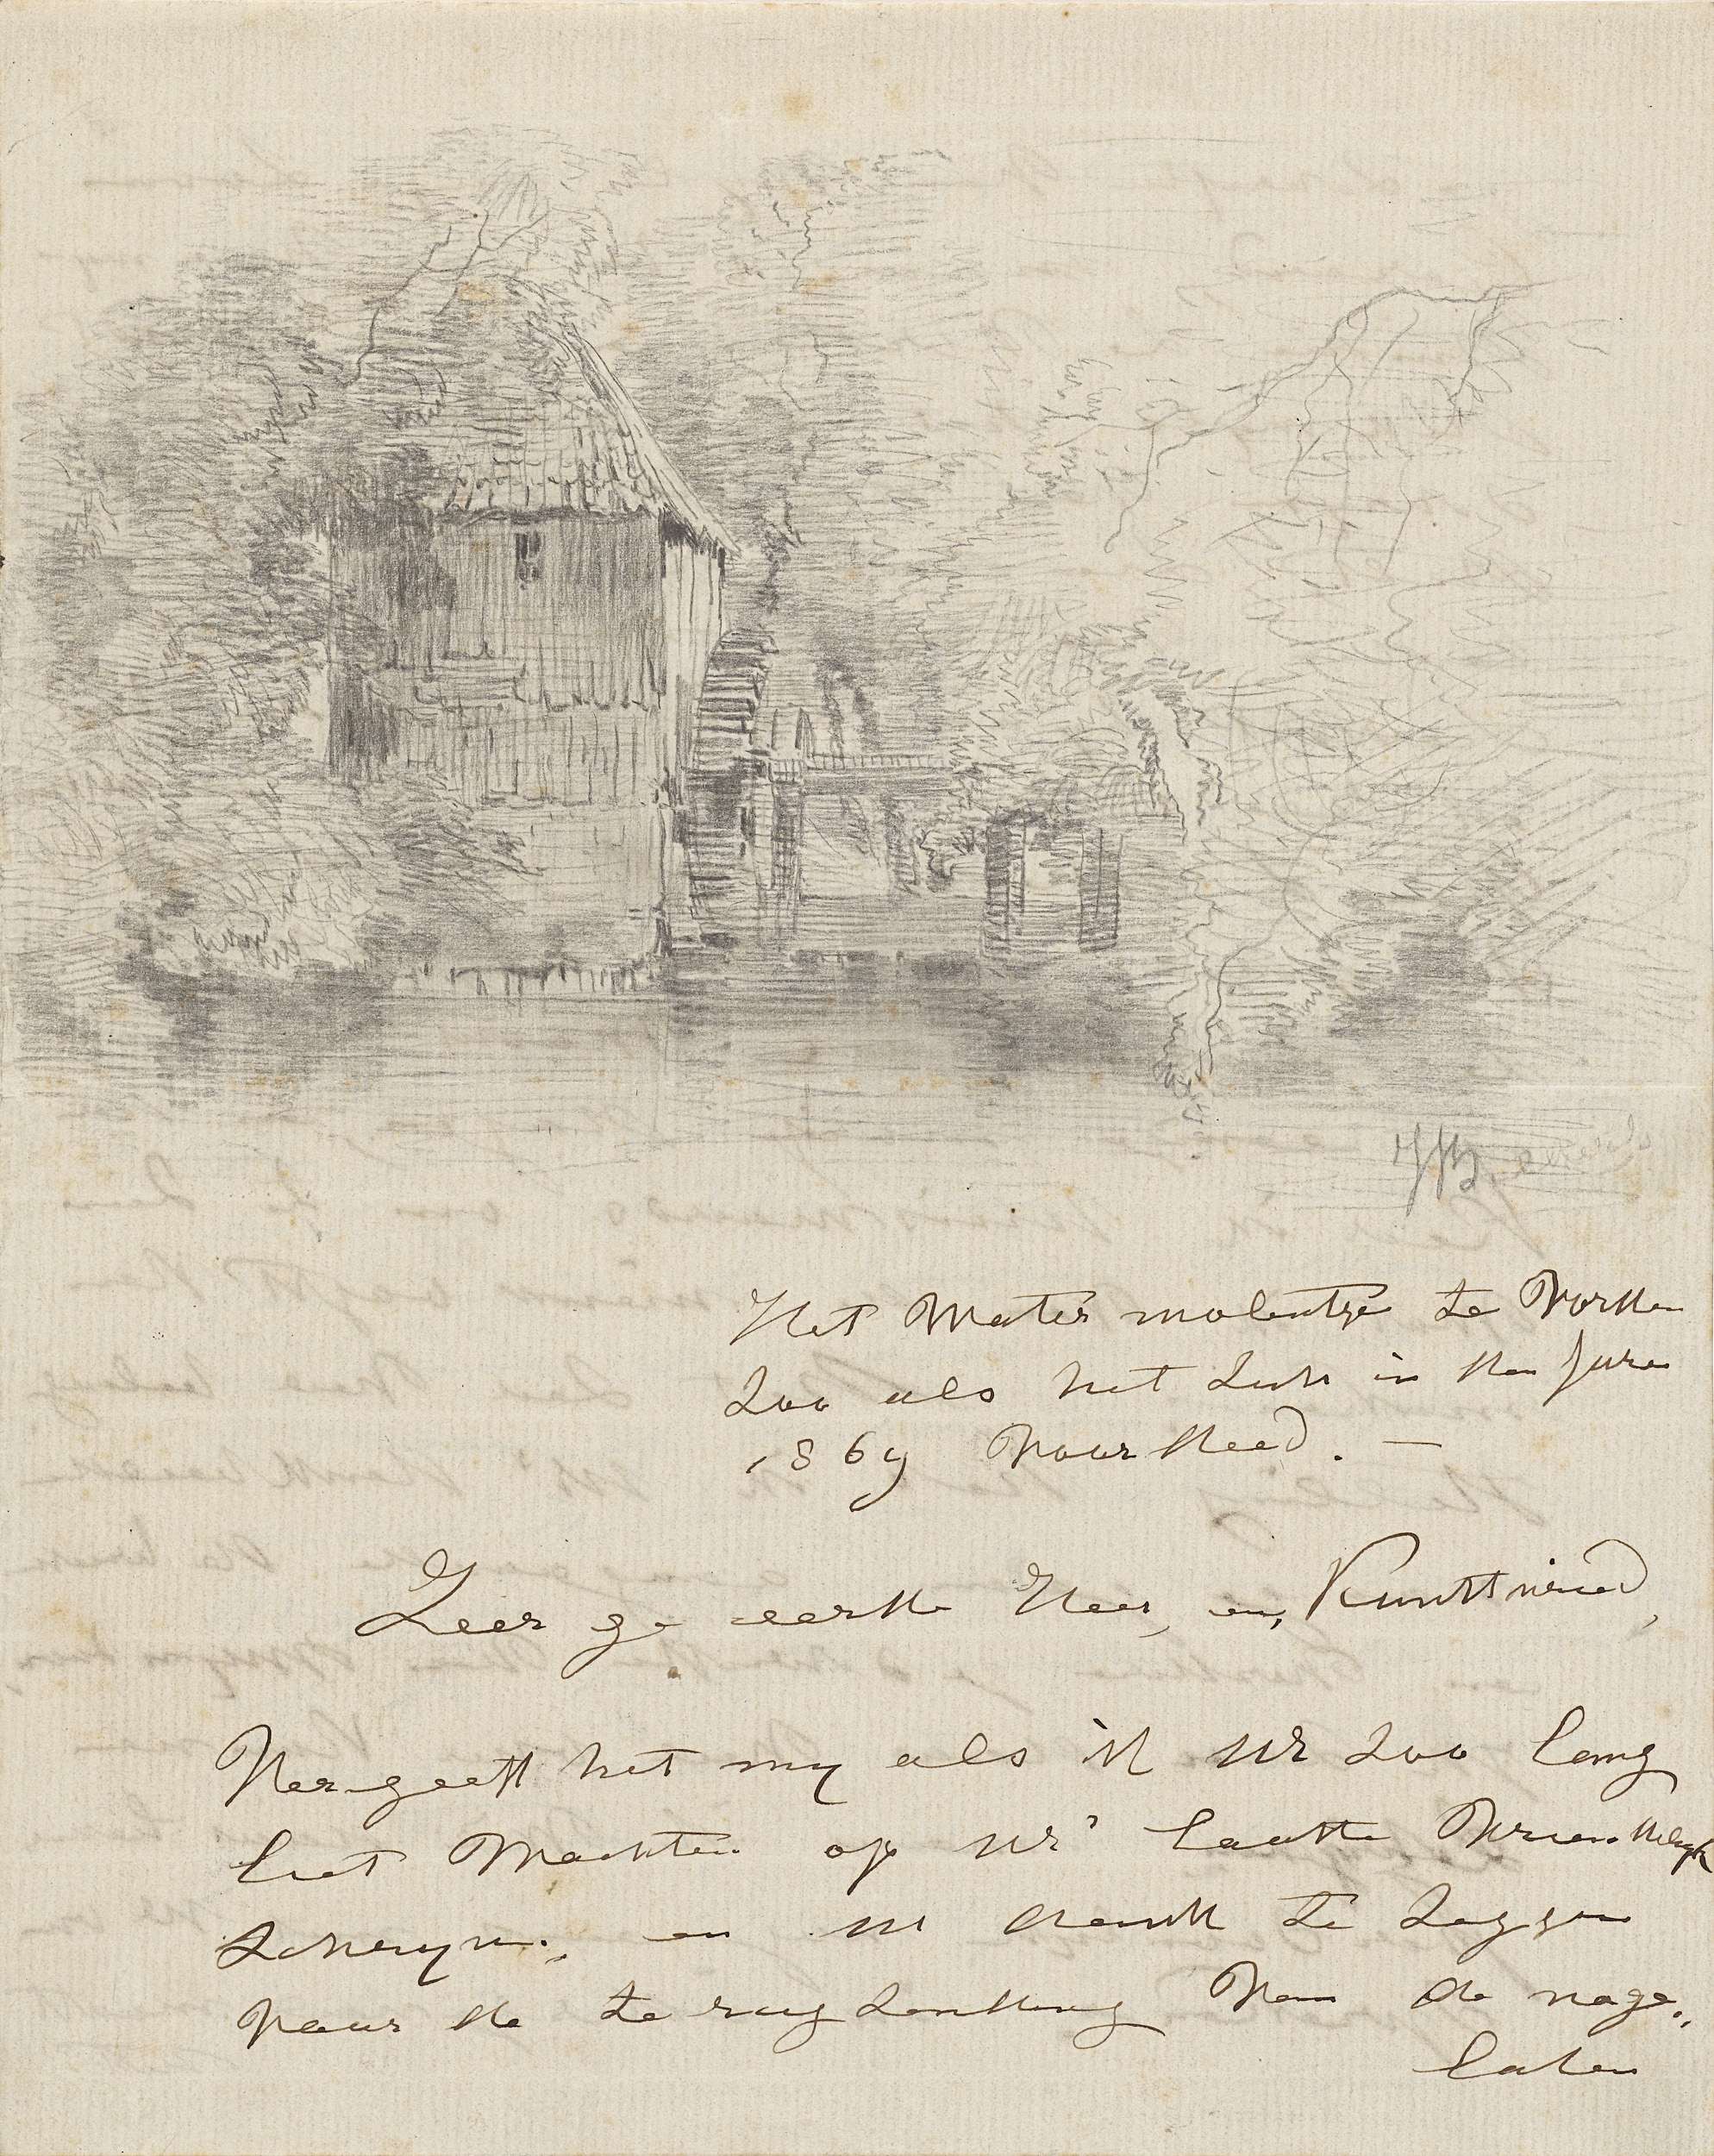 Het Water molentje te Vorden
zoo als het zich in den jare
1869 voordeed. —
Zeer ge eerde Heer, en Kunstvriend,
Vergeeft het my als ik UE zoo lang
liet wachten op UE' laatste vriendelyk
schryven, en UE dank te zeggen
voor de te rug zending van de nage„
laten